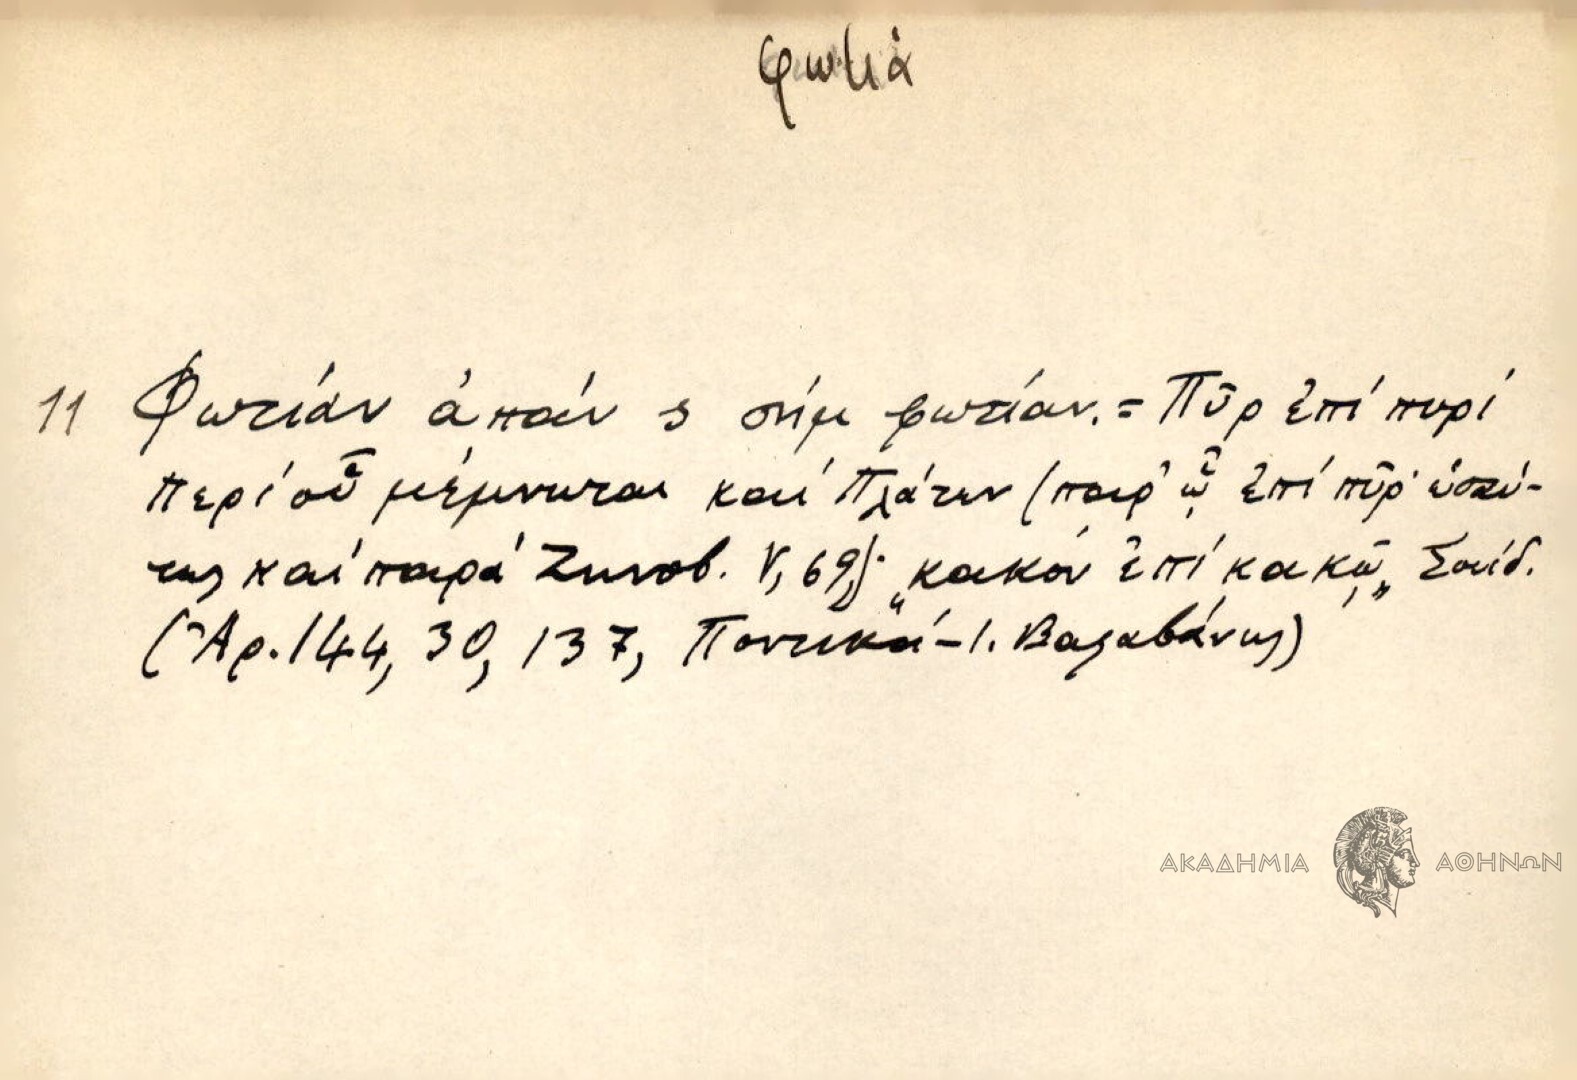 φωτιά
11 Φωτίαν ἀπάν ς σήμ φωτίαν. = Πῦρ ἐπί πυρί
περί οὗ μέμνηται καί Πλάτων (παρ' ᾧ ἐπί πῦρ· ὡσαύ-
τως καί παρά Ζηνοβ. V, 69)· „κακόν ἐπί κακῷ„ Σουίδ.
(Ἀρ. 144, 30, 137, Ποντικά - Ι. Βαλαβάνης)
ΑΚΑΔΗΜΙΑ ΑΘΗΝΩΝ